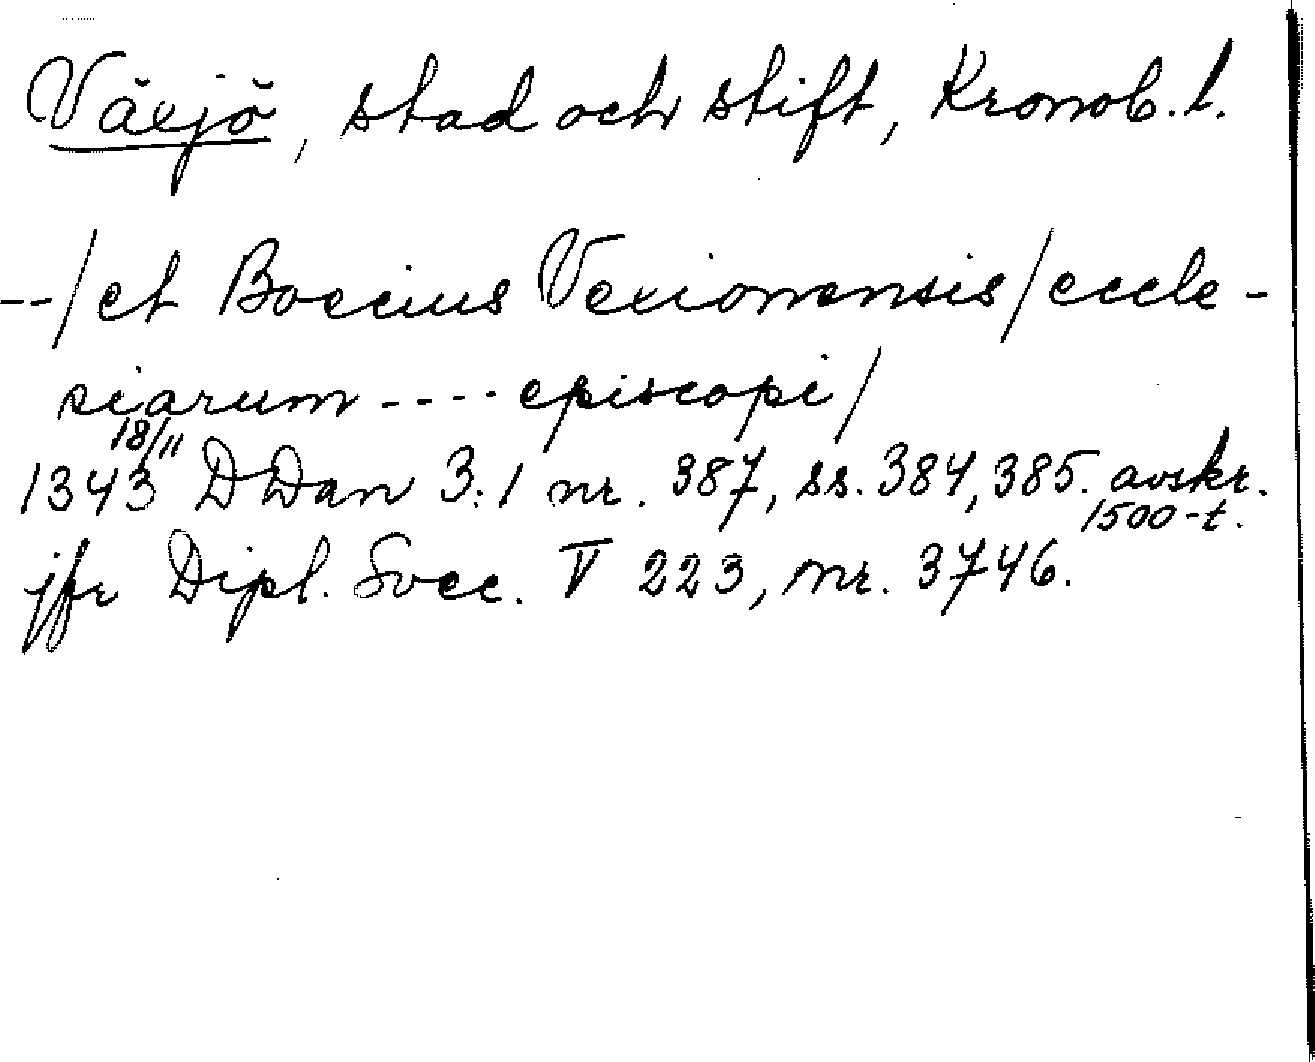 Växjö, stad och stift, Kronob. l.
--/et Boecius Vexionensis/eccle-
siarum ---- episcopi/
18/11
1343 DDan 3:1 nr. 387, ss. 384, 385. avskr.
1500-t.
jfr Dipl. Svec. V 223, nr. 3746.